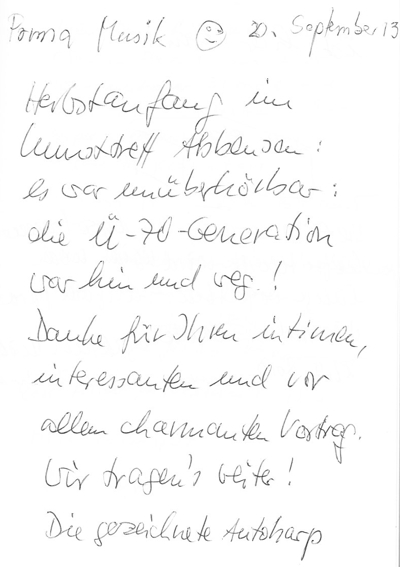 Prima Musik 20. September 13
Herbstanfang im
Kunsttreff Abbensen:
es war unüberhörbar:
die Ü-70-Generation
war hin und weg!
Danke für Ihren intimen,
interessanten und vor
allem charmanten Vortrag.
Wir tragen's weiter!
Die gezeichnete Autoharp